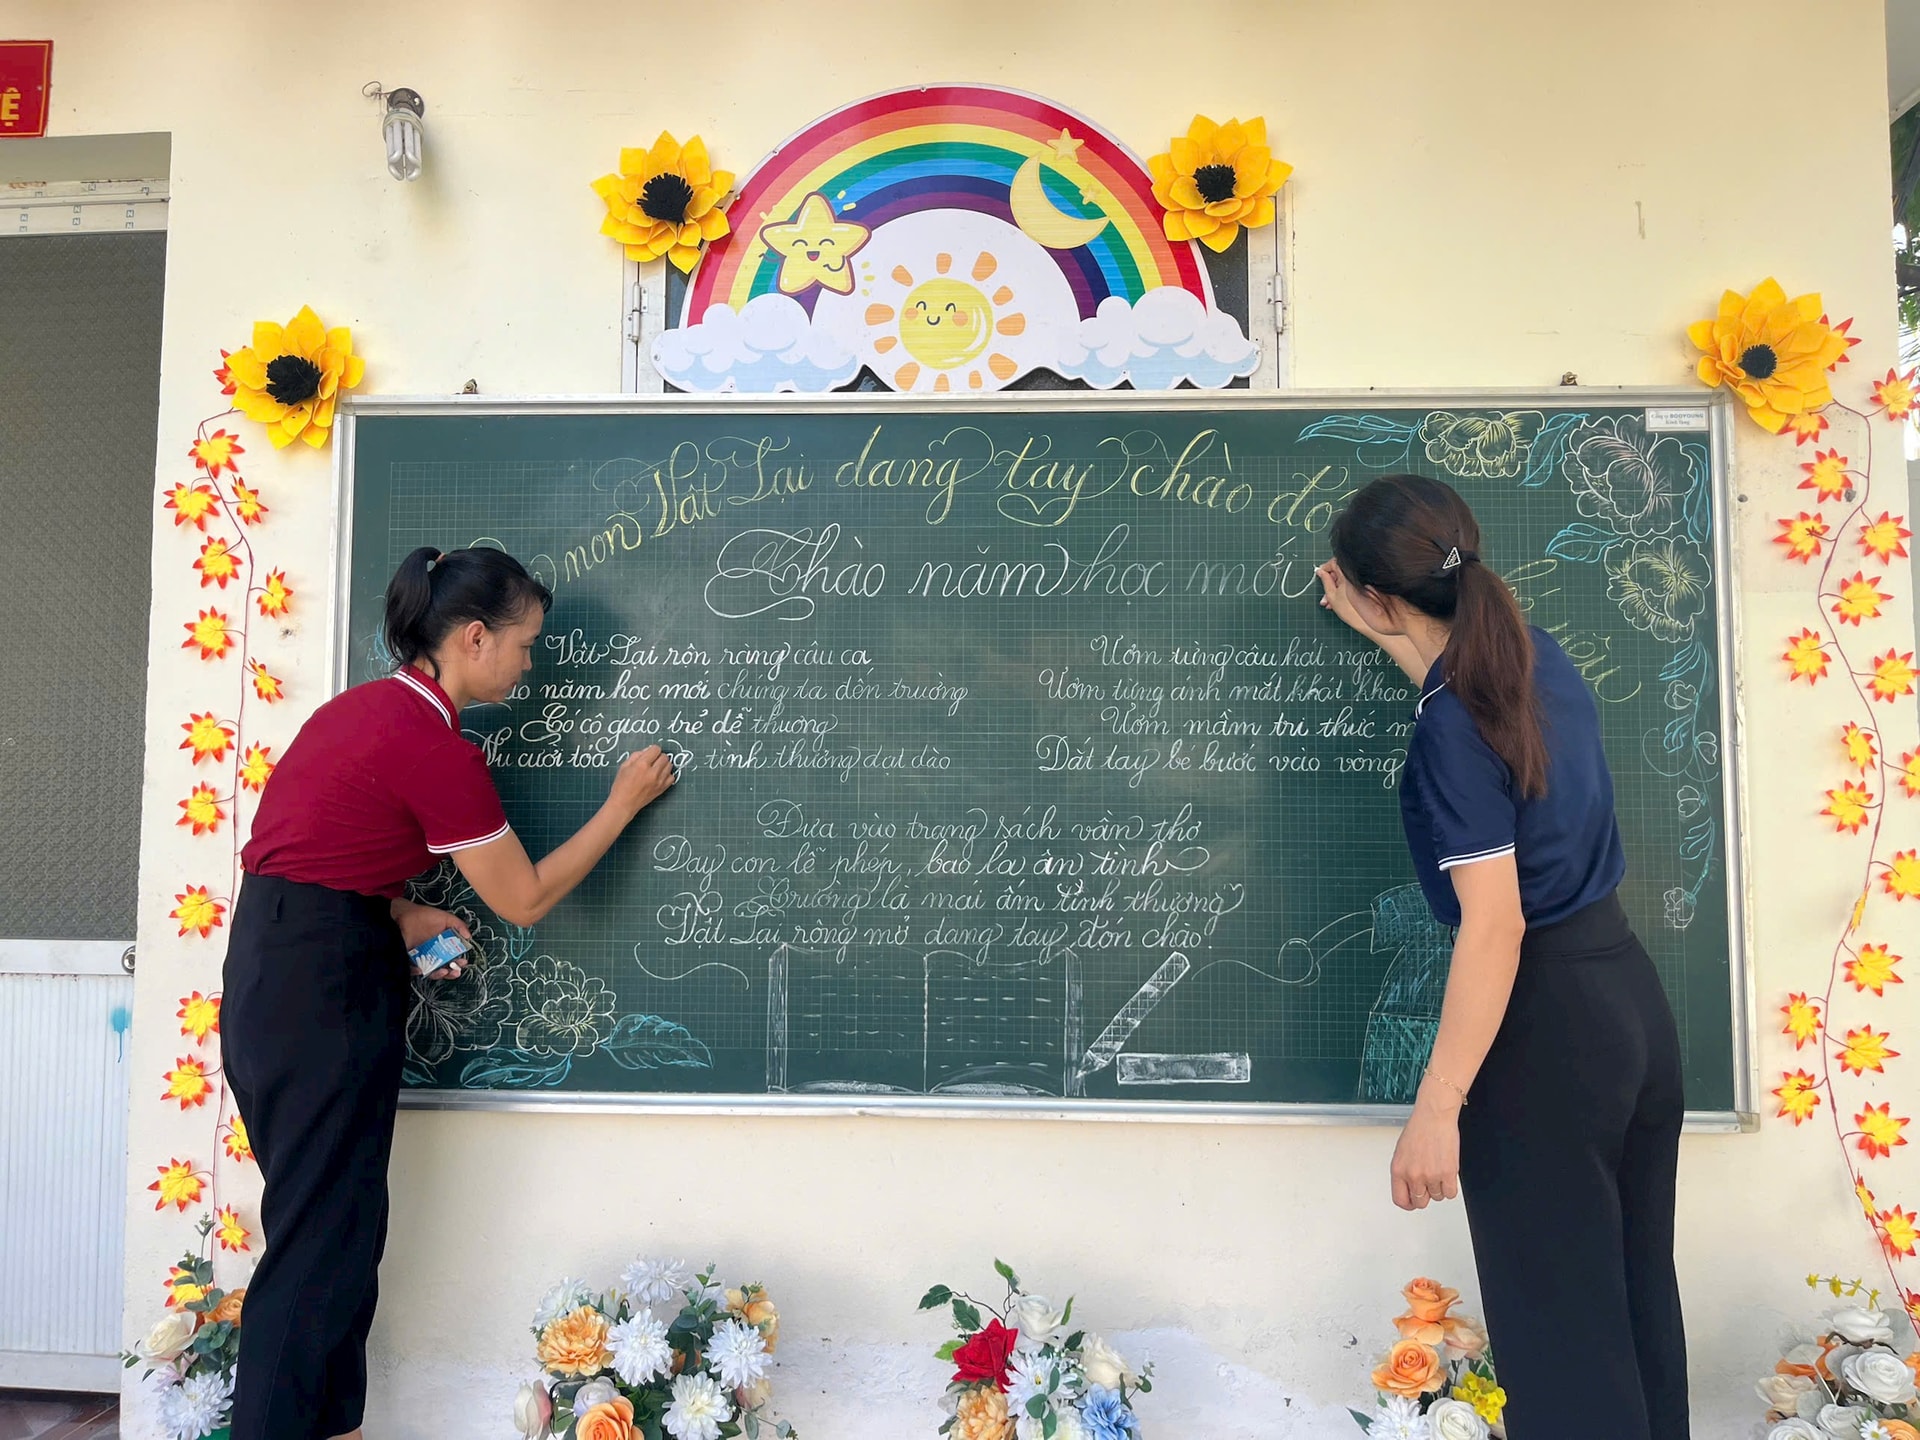 Ệ
non Vật Lại dang tay chào đó
Chào năm học mới
Vật Lại rộn ràng câu ca
năm học mới chúng ta đến trường
Có cô giáo trẻ dễ thương
Nụ cười toả nắng, tình thương dạt dào
Ươm từng câu hát ngọt
Ươm từng ánh mắt khát khao
Ươm mầm tri thức
Dắt tay bé bước vào vòng
Đưa vào trang sách vần thơ
Dạy con lễ phép, bao la ân tình
Trường là mái ấm tình thương
Vật Lại rộng mở dang tay đón chào!